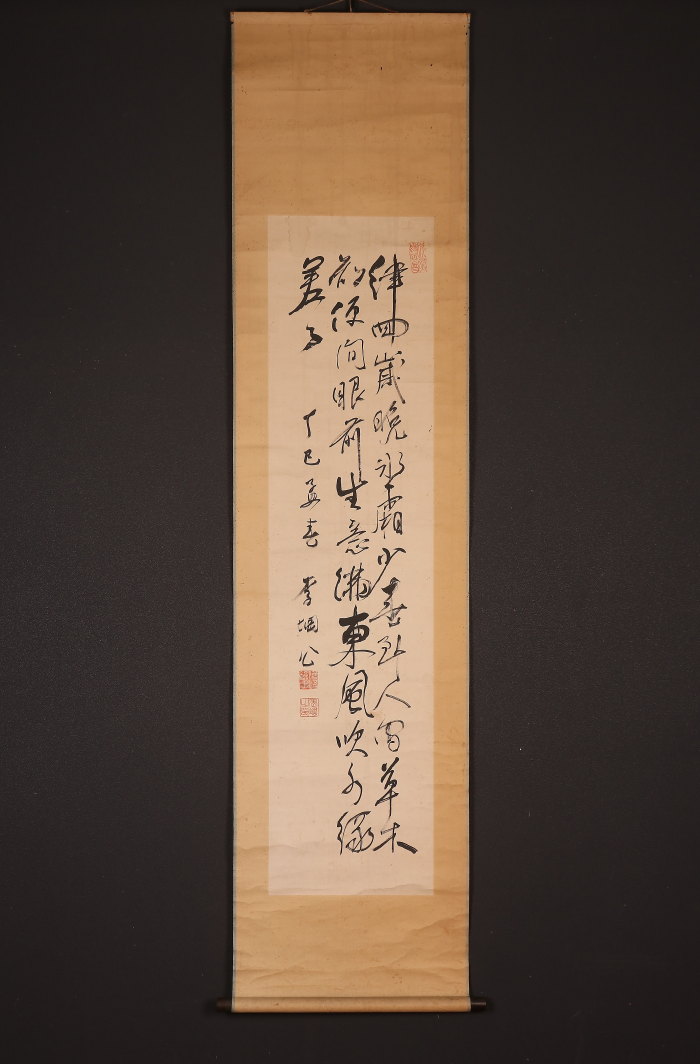 律回歲晚冰霜少春到人間草木
知便眼前生意滿東風吹水綠
差
丁巳孟春 李